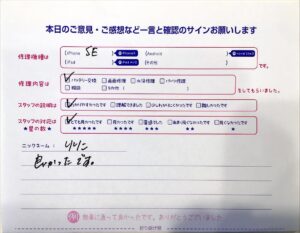 本日のご意見・ご感想など一言と確認のサインお願いします
修理機種は
iPhone SE
Android
iPad
その他
です。
修理内容は
バッテリー交換 画面修理 水没修理 パーツ修理
相談 その他
をしてもらいました。
スタッフの説明は
わかりやすかったです 理解できました 少しわかりにくかったです 難しかったです
スタッフの対応は
★星の数★
とても良かったです 良かったです 普通でした あまり良くなかったです 良くなかったです
★★★★★ ★★★★ ★★★ ★★ ★
ニックネーム: りりこ
良かったです。
効果に通って良かったです。ありがとうございました